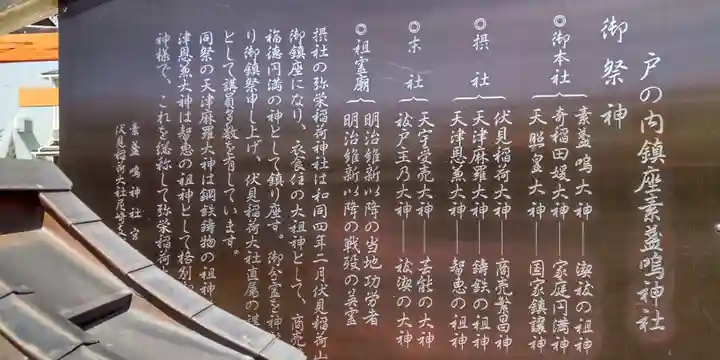 戸の内鎮座素盞嗚神社
御祭神
◎御本社
素盞嗚大神――潔祓の祖神
奇稲田媛大神――家庭円満神
天照皇大神――国家鎮護神
◎摂社
伏見稲荷大神――商売繁昌神
天津麻羅大神――鋳鉄の祖神
天津思兼大神――智恵の祖神
◎末社
天宇受売大神――芸能の大神
祓戸王乃大神――祓潔の大神
◎祖霊廟
明治維新以降の当地功労者
明治維新以降の戦歿の英霊
摂社の弥栄稲荷神社は和同四年二月伏見稲荷山
御鎮座になり、衣食住の大祖神として、商売
福徳円満の神として鎮り座す。御分霊を神
り御鎮祭申し上げ、伏見稲荷大社直属の
として講員多数を有しています。
同祭の天津麻羅大神は鋼鉄鋳物の祖神
津思兼大神は智恵の祖神として格別
神様で、これを総称して弥栄稲荷
素盞嗚神社宮
伏見稲荷大社尼崎